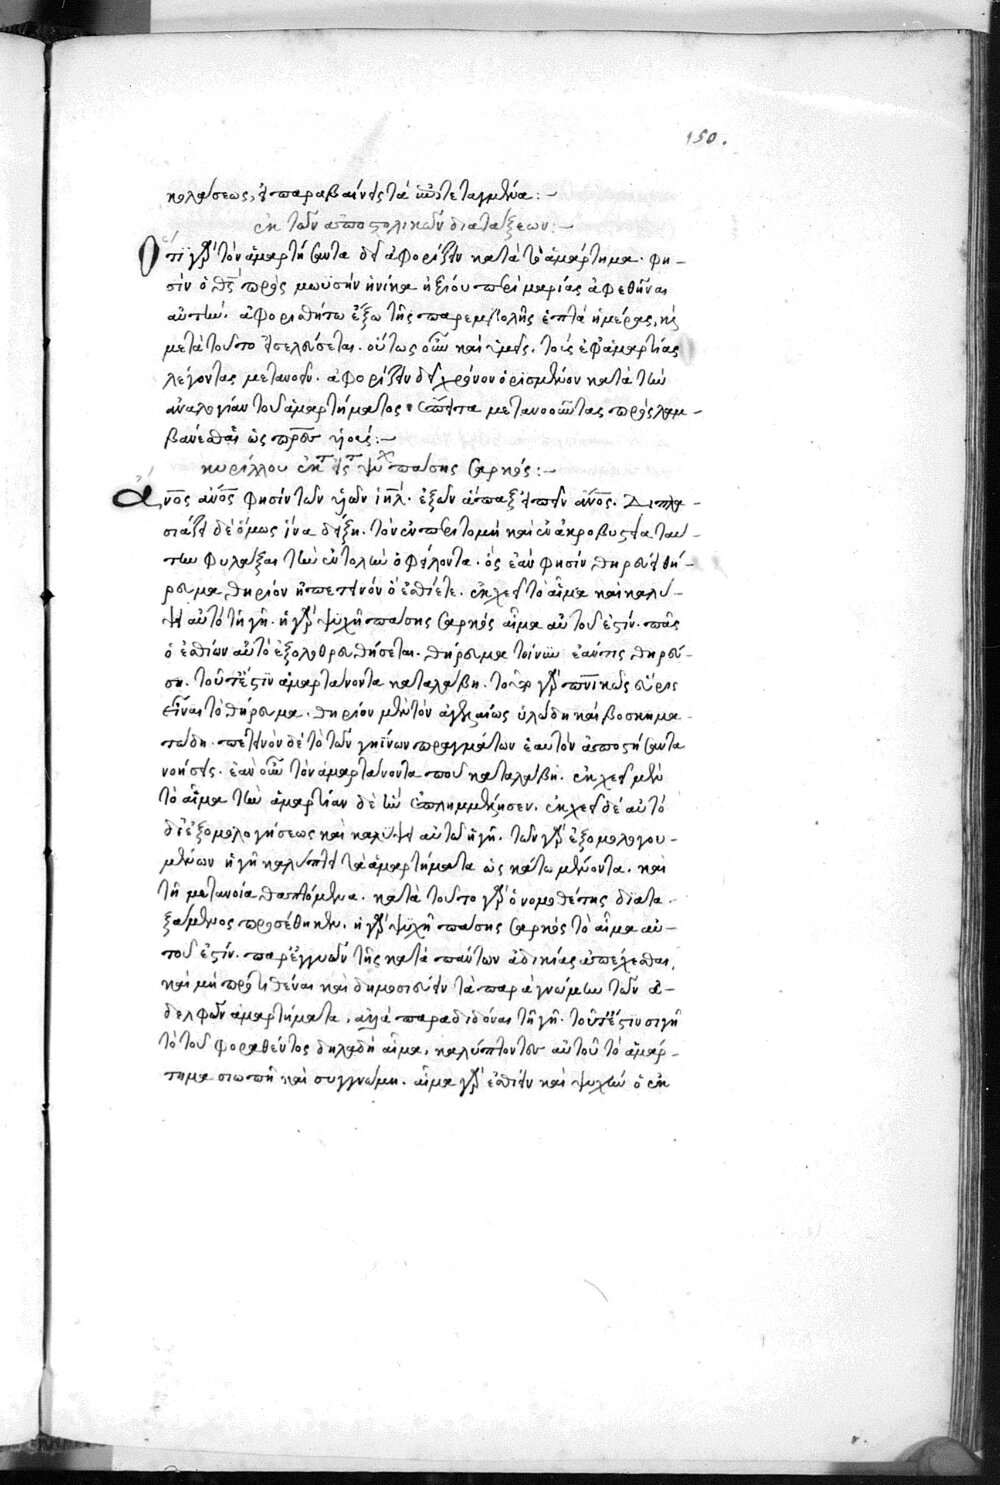 150.
κολάσεως, ὁ παραβαίνων τὰ ἐντεταγμένα :~
ἐκ τῶν ἀποστολικῶν διατάξεων :~
Ὅτι γὰρ τὸν ἁμαρτήσαντα δεῖ ἀφορίζειν κατὰ τὸ ἁμάρτημα. φη-
σὶν ὁ θς πρὸς μωϋσῆν ἡνίκα ἠξίου περὶ μαρίας ἀφεθῆναι
αὐτήν. ἀφορισθήτω ἔξω τῆς παρεμβολῆς ἑπτὰ ἡμέρας, κὶ
μετὰ τοῦτο εἰσελεύσεται. οὕτως οὖν καὶ ὑμεῖς. τοὺς ἐφ' ἁμαρτίας
λέγοντας μετανοεῖν. ἀφορίζειν χρόνον ὁρισμένον κατὰ τὴν
ἀναλογίαν τοῦ ἁμαρτήματος. ἔπειτα μετανοοῦντας προσλαμ-
βάνεσθαι ὡς πρες υἱούς :~
κυρίλλου ἐκ ψυχ πάσης σαρκός :~
ανος ανος φησὶν τῶν υἱῶν ιηλ. ἐξὸν ἅπαξ εἰπεῖν ανος. Διπλα-
σιάζει δὲ ὅμως ἵνα δείξῃ. τὸν ἐν περιτομῇ καὶ ἐν ἀκροβυστίᾳ ταύ-
την φυλάξαι τὴν ἐντολὴν ὀφείλοντα. ὃς ἐὰν φησὶν θηρεύσῃ θή-
ρευμα, θηρίον ἢ πετεινὸν ὃ ἐσθίεται. ἐκχεεῖ τὸ αἷμα καὶ καλύ-
ψει αὐτὸ τῇ γῇ. ἡ γὰρ ψυχὴ πάσης σαρκὸς αἷμα αὐτοῦ ἐστίν. πᾶς
ὁ ἐσθίων αὐτὸ ἐξολοθρευθήσεται. θήρευμα τοίνυν ἐάν τις θηρεύ-
σῃ. τοῦτ' ἔστιν ἁμαρτάνοντα καταλάβῃ. γὰρ πνικῶς
εἶναι τὸ θήρευμα. θηρίον μὲν τὸν ἀγελαίως ὑλώδη καὶ βοσκημα-
τώδη. πετεινὸν δὲ τὸ τῶν γηΐνων πραγμάτων ἑαυτὸν ἀποστήσαντα
νοήσεις. ἐὰν οὖν τὸν ἁμαρτάνοντα που καταλάβῃ. ἐκχεεῖ μὲν
τὸ αἷμα τὴν ἁμαρτίαν δὲ ἣν ἐπλημμέλησεν. ἐκχεεῖ δὲ αὐτὸ
δι' ἐξομολογήσεως καὶ καλύψει αὐτὸ ἡ γῆ. τῶν γὰρ ἐξομολογου-
μένων ἡ γῆ καλύπτει τὰ ἁμαρτήματα ὡς κάτω μένοντα. καὶ
τῇ μετανοίᾳ θαπτόμενα. κατὰ τοῦτο γὰρ ὁ νομοθέτης διατα-
ξάμενος προσέθηκεν. ἡ γὰρ ψυχὴ πάσης σαρκὸς τὸ αἷμα αὐ-
τοῦ ἐστίν. παρεγγυῶν τῆς κατὰ πάντων ἀδικίας ἀπέχεσθαι,
καὶ μὴ προτιθέναι καὶ δημοσιεύειν τὰ παρὰ γνώμην τῶν ἀ-
δελφῶν ἁμαρτήματα, ἀλλὰ παραδιδόναι τῇ γῇ. τοῦτ' ἔστιν σιγῇ
τὸ τοῦ φοραθέντος δηλαδὴ αἷμα, καλύπτοντος αὐτοῦ τὸ ἁμάρ-
τημα σιωπῇ καὶ συγγνώμῃ. αἷμα γὰρ ἐσθίειν καὶ ψυχὴν ὁ ἐκ